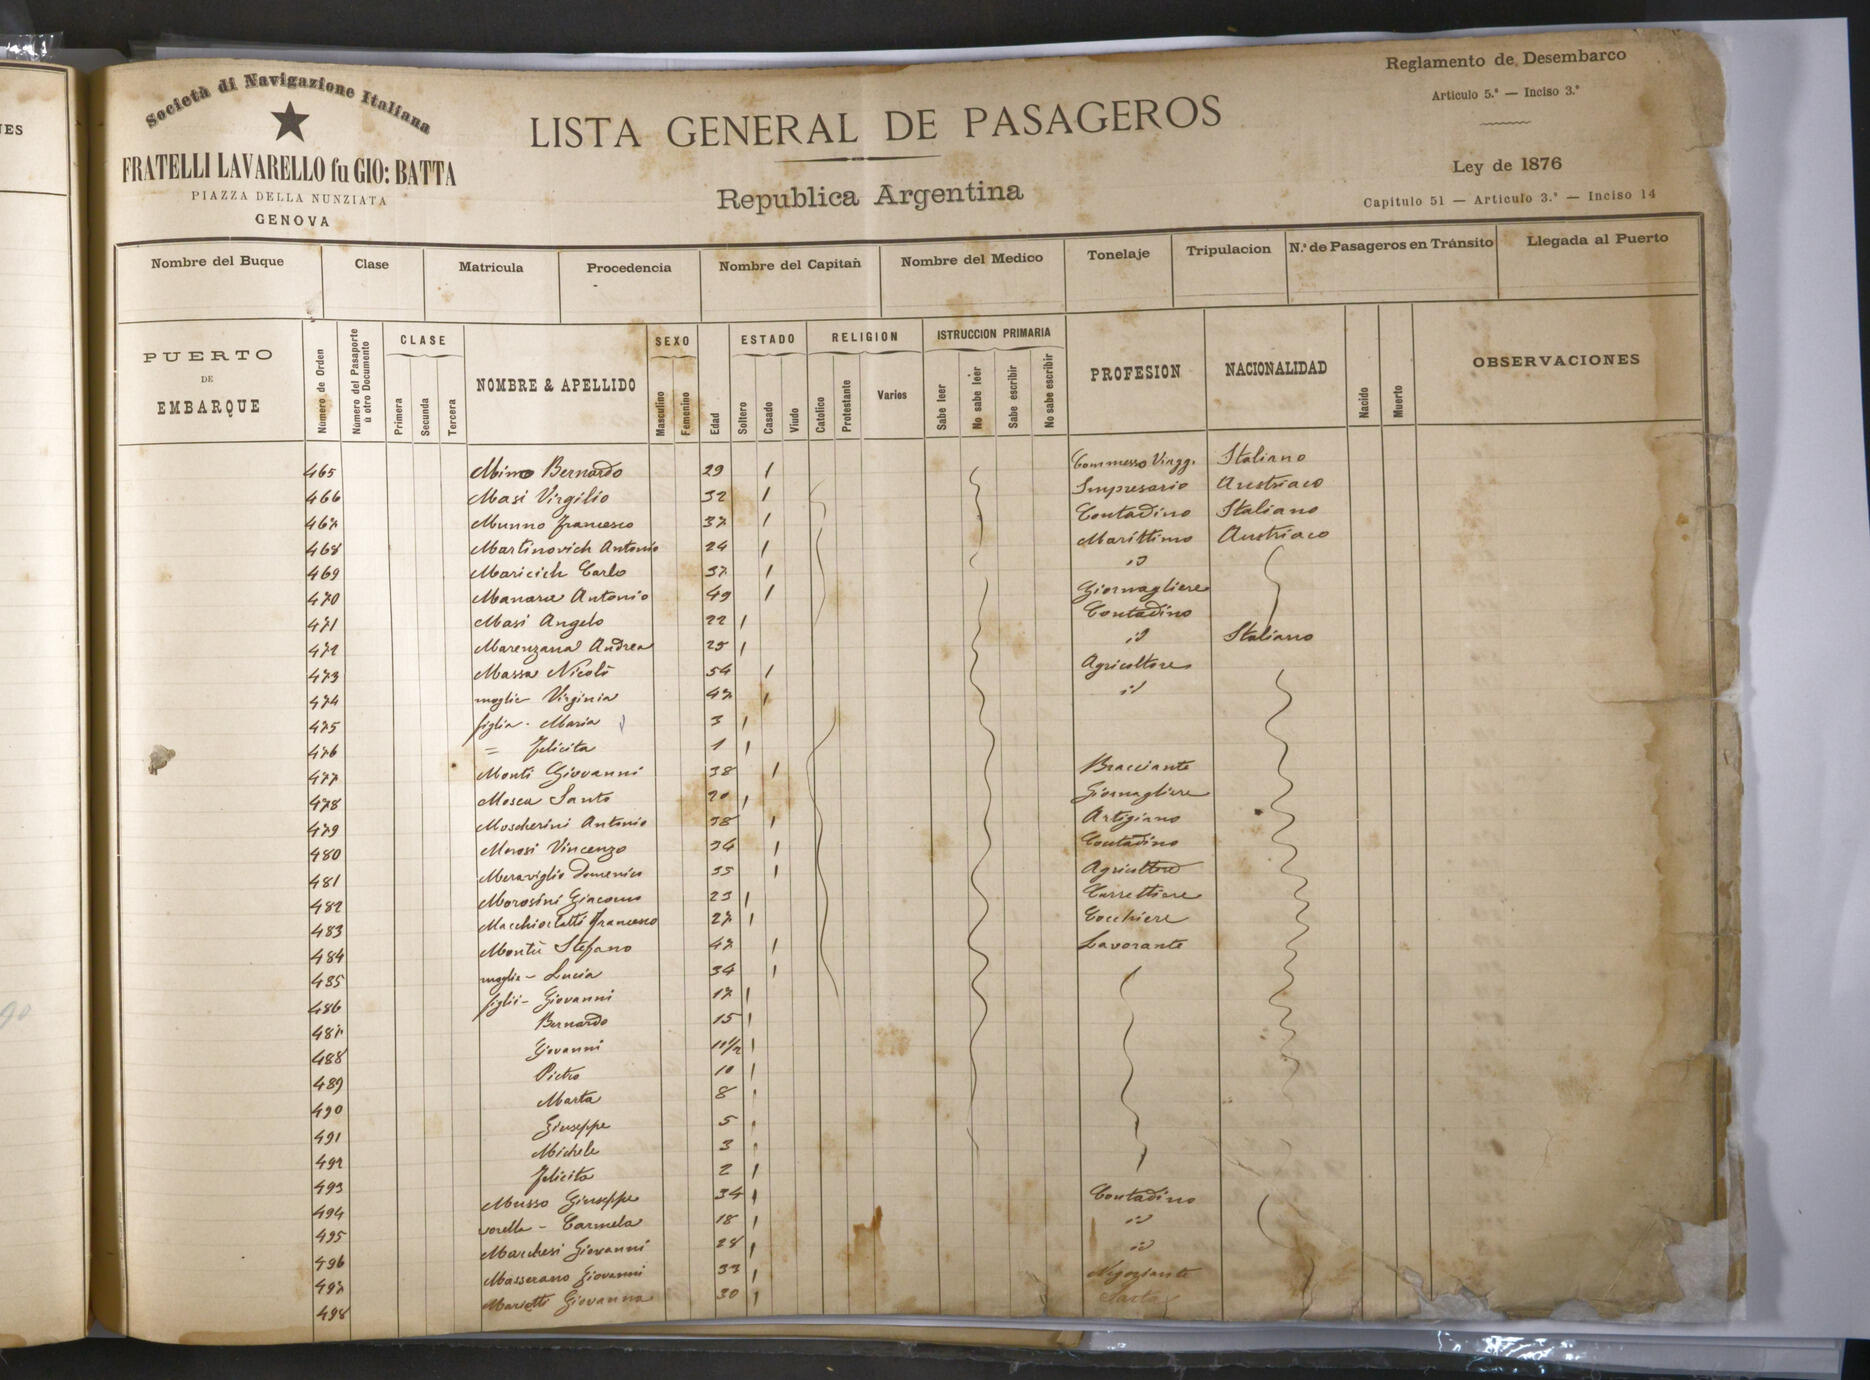 Società di Navigazione Italiana
FRATELLI LAVARELLO fu GIO: BATTA
PIAZZA DELLA NUNZIATA
GENOVA
LISTA GENERAL DE PASAGEROS
Republica Argentina
Reglamento de Desembarco
Articulo 5.° — Inciso 3.°
Ley de 1876
Capitulo 51 — Articulo 3.° — Inciso 14
Nombre del Buque Clase Matricula Procedencia Nombre del Capitañ Nombre del Medico Tonelaje Tripulacion N.° de Pasageros en Tránsito Llegada al Puerto
PUERTO DE EMBARQUE
Número de Orden
Número del Pasaporte ù otro Documento
CLASE Primera Secunda Tercera
NOMBRE & APELLIDO
SEXO Masculino Femenino
Edad
ESTADO Soltero Casado Viudo
RELIGION Catolico Protestante Varios
ISTRUCCION PRIMARIA Sabe leer No sabe leer Sabe escribir No sabe escribir
PROFESION
NACIONALIDAD
Nacido
Muerto
OBSERVACIONES
465 Mimo Bernardo 29 1 Commesso Viagg. Italiano
466 Masi Virgilio 32 1 Impresario Austriaco
467 Munno Francesco 37 1 Contadino Italiano
468 Martinovich Antonio 24 1 Marittimo Austriaco
469 Maricich Carlo 37 1 id
470 Antonio 49 1 Giornagliere
471 Masi Angelo 22 1 Contadino
472 Marenzana Andrea 25 1 id Italiano
473 Massa Nicolò 54 1 Agricoltore
474 moglie Virginia 47 1 id
475 figlia - Maria 3 1
476 = Felicita 1 1
477 Monti Giovanni 38 1 Bracciante
478 Mosca Santo 20 1 Giornagliere
479 Moscherini Antonio 38 1 Artigiano
480 Morosi Vincenzo 34 1 Contadino
481 Meraviglio Domenico 35 1 Agricoltore
482 Morosini Giacomo 23 1 Carrettiere
483 Francesco 27 1 Cocchiere
484 Montù Stefano 47 1 Lavorante
485 moglie - Lucia 34 1
486 figlii - Giovanni 17 1
487 Bernardo 15 1
488 Giovanni 11 1/2 1
489 Pietro 10 1
490 Marta 8 1
491 Giuseppe 5 1
492 Michele 3 1
493 Felicita 2 1
494 Musso Giuseppe 34 1 Contadino
495 sorella - Carmela 18 1 id
496 Marchesi Giovanni 28 1 id
497 Masserano Giovanni 33 1 Negoziante
498 Mariotti Giovanna 30 1 Sarta